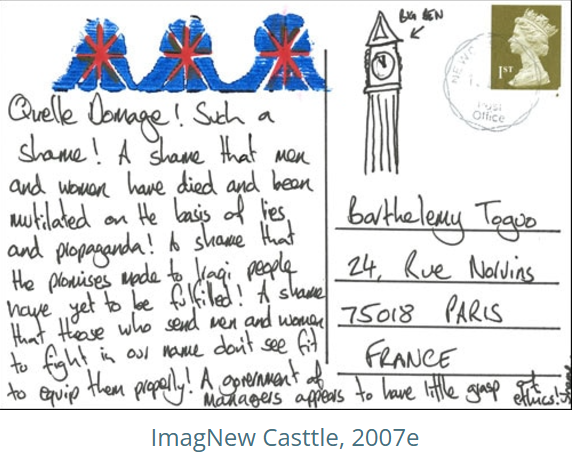 BIG BEN
NEWC
1ST
Post
Office
Quelle Domage! Such a
shame! A shame that men
and women have died and been
mutilated on the basis of lies
and propaganda! A shame that
the promises made to Iraqi people
have yet to be fulfilled! A shame
that those who send men and women
to fight in our name don't see fit
to equip them properly! A government of
managers appears to have little grasp of
ethics! Shame
Barthelemy Toguo
24, Rue Norvins
75018 PARIS
FRANCE
ImagNew Casttle, 2007e